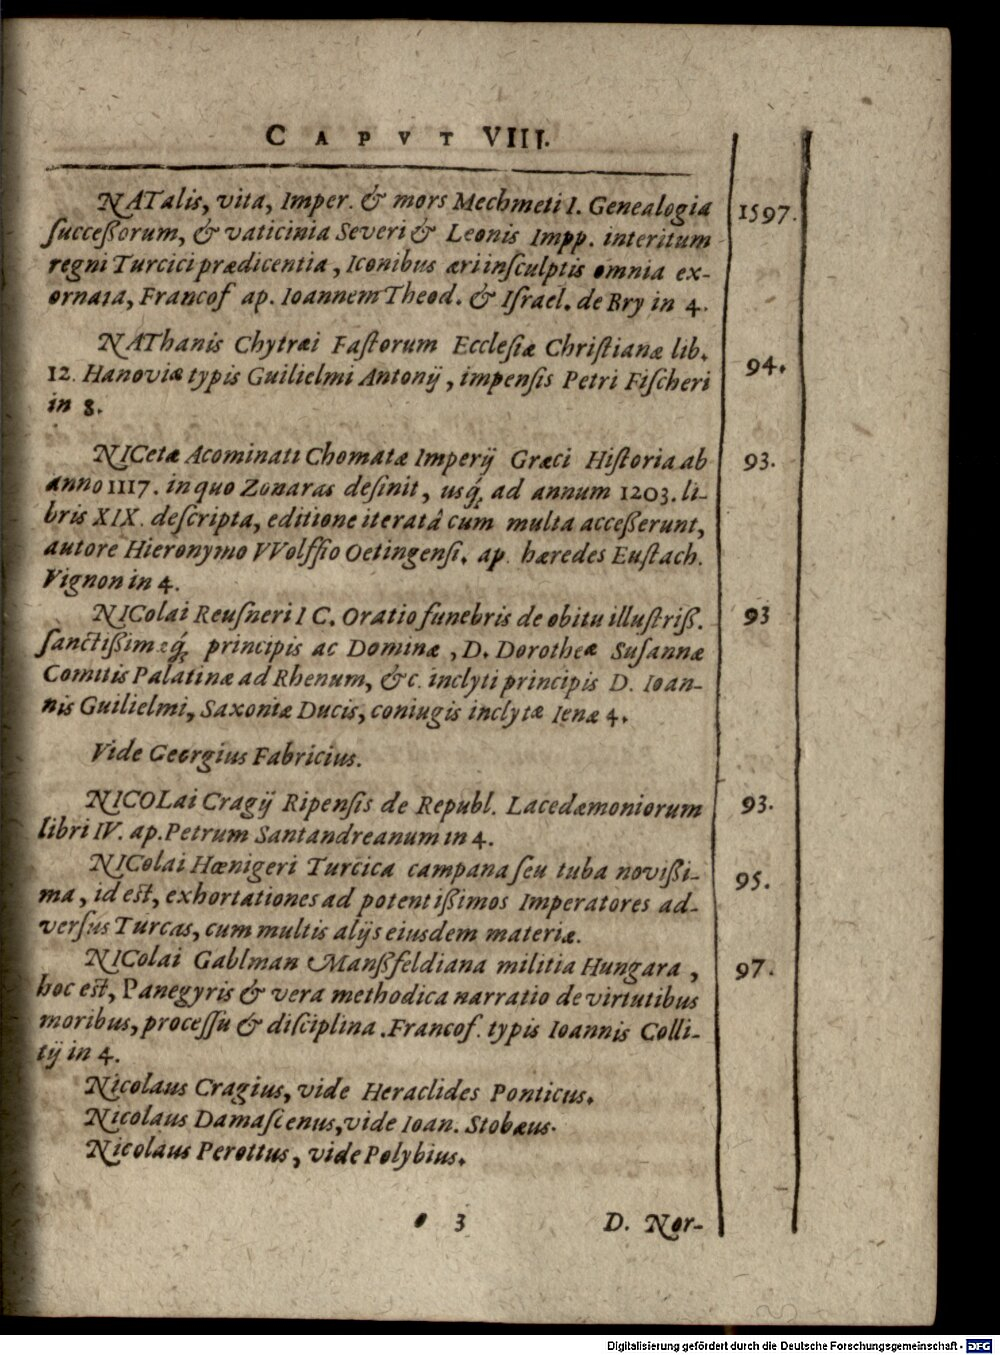 CAPVT VIII.
NATalis, vita, Imper. & mors Mechmeti I. Genealogia 1597.
succeßorum, & vaticinia Severi & Leonis Impp. interitum
regni Turcici prædicentia, Iconibus æri insculptis omnia ex-
ornata, Francof ap. Ioannem Theod. & Israel. de Bry in 4.
NAThanis Chytræi Fastorum Ecclesiæ Christianæ lib. 94.
12. Hanoviæ typis Guilielmi Antonij, impensis Petri Fischeri
in 8.
NICetæ Acominati Chomatæ Imperij Græci Historia ab 93.
anno 1117. in quo Zonaras desinit, usq́; ad annum 1203. li-
bris XIX. descripta, editione iteratâ cum multa acceßerunt,
autore Hieronymo VVolffio Oetingensi. ap. hæredes Eustach.
Vignon in 4.
NIColai Reusneri I C. Oratio funebris de obitu illustriß. 93
sanctißimæq́; principis ac Dominæ, D. Dorotheæ Susannæ
Comitis Palatinæ ad Rhenum, &c. inclyti principis D. Ioan-
nis Guilielmi, Saxoniæ Ducis, coniugis inclytæ Ienæ 4.
Vide Georgius Fabricius.
NICOLai Cragij Ripensis de Republ. Lacedæmoniorum 93.
libri IV. ap. Petrum Santandreanum in 4.
NIColai Hœnigeri Turcica campana seu tuba novißi- 95.
ma, id est, exhortationes ad potentißimos Imperatores ad-
versus Turcas, cum multis alijs eiusdem materiæ.
NIColai Gablman Manßfeldiana militia Hungara, 97.
hoc est, Panegyris & vera methodica narratio de virtutibus
moribus, processu & disciplina. Francof. typis Ioannis Colli-
tij in 4.
Nicolaus Cragius, vide Heraclides Ponticus.
Nicolaus Damascenus, vide Ioan. Stobæus.
Nicolaus Perottus, vide Polybius.
3 D. Nor-
Digitalisierung gefördert durch die Deutsche Forschungsgemeinschaft - DFG